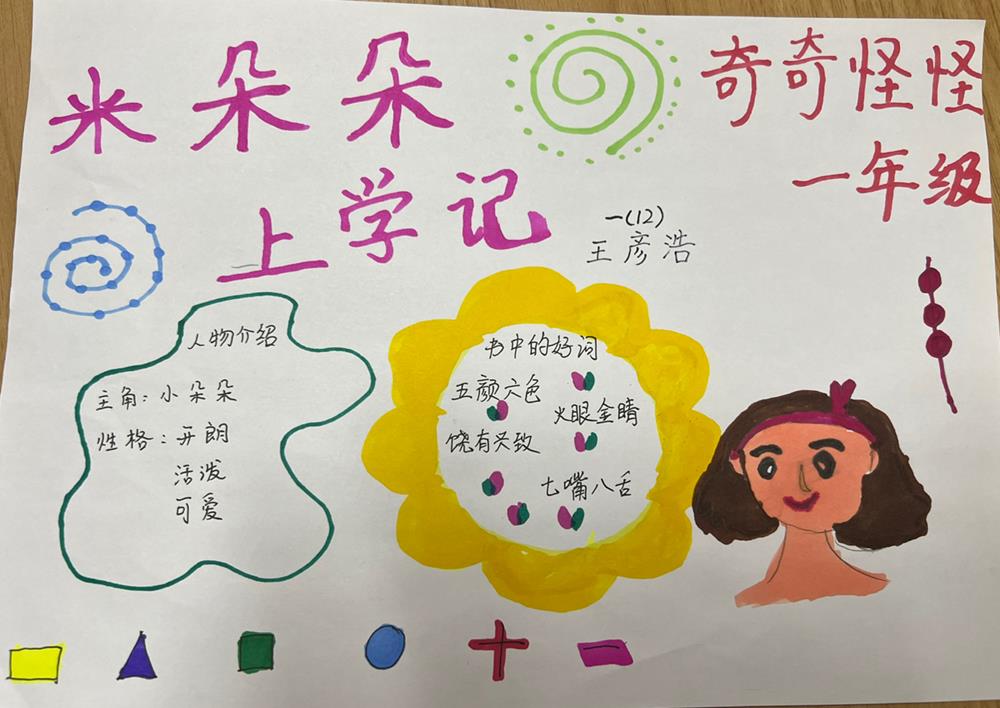 米朵朵
上学记
奇奇怪怪
一年级
一(12)
王彦浩
人物介绍
主角：小朵朵
性格：开朗
活泼
可爱
书中的好词
五颜六色
火眼金睛
饶有兴致
七嘴八舌